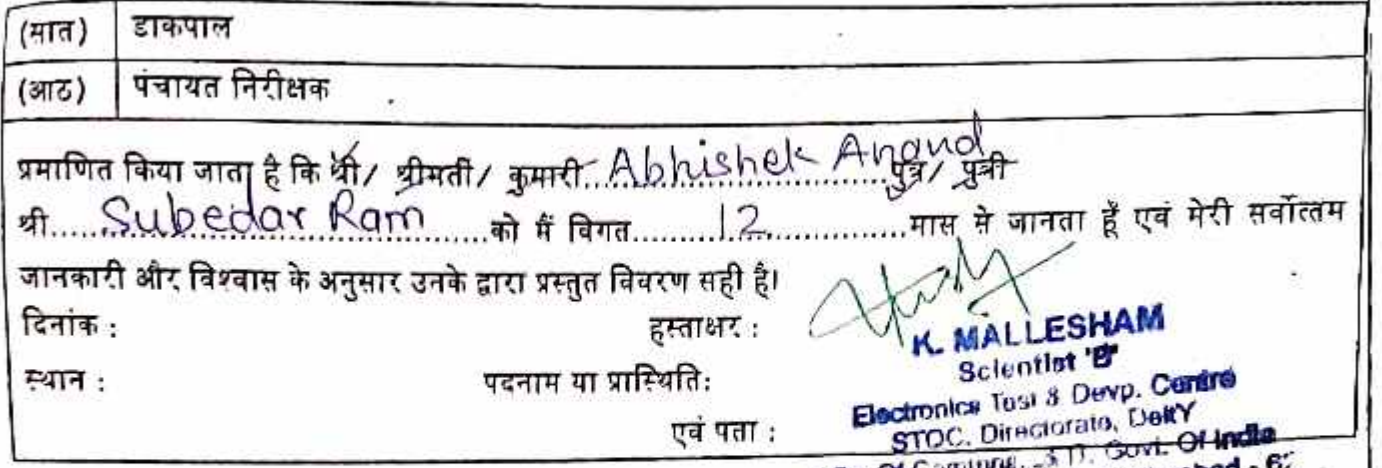 (सात) डाकपाल
(आठ) पंचायत निरीक्षक
प्रमाणित किया जाता है कि श्री/ श्रीमती/ कुमारी..Abhishek Anand..पुत्र/ पुत्री
श्री.....Subedar Ram.....को मैं विगत.........12..................मास से जानता हूँ एवं मेरी सर्वोत्तम
जानकारी और विश्वास के अनुसार उनके द्वारा प्रस्तुत विवरण सही है।
दिनांक : हस्ताक्षर :
K. MALLESHAM
Scientist 'B'
स्थान : पदनाम या प्रास्थिति:
Electronics Test & Devp. Centre
एवं पता : STQC. Directorate, DeitY
Of Govt. Of India